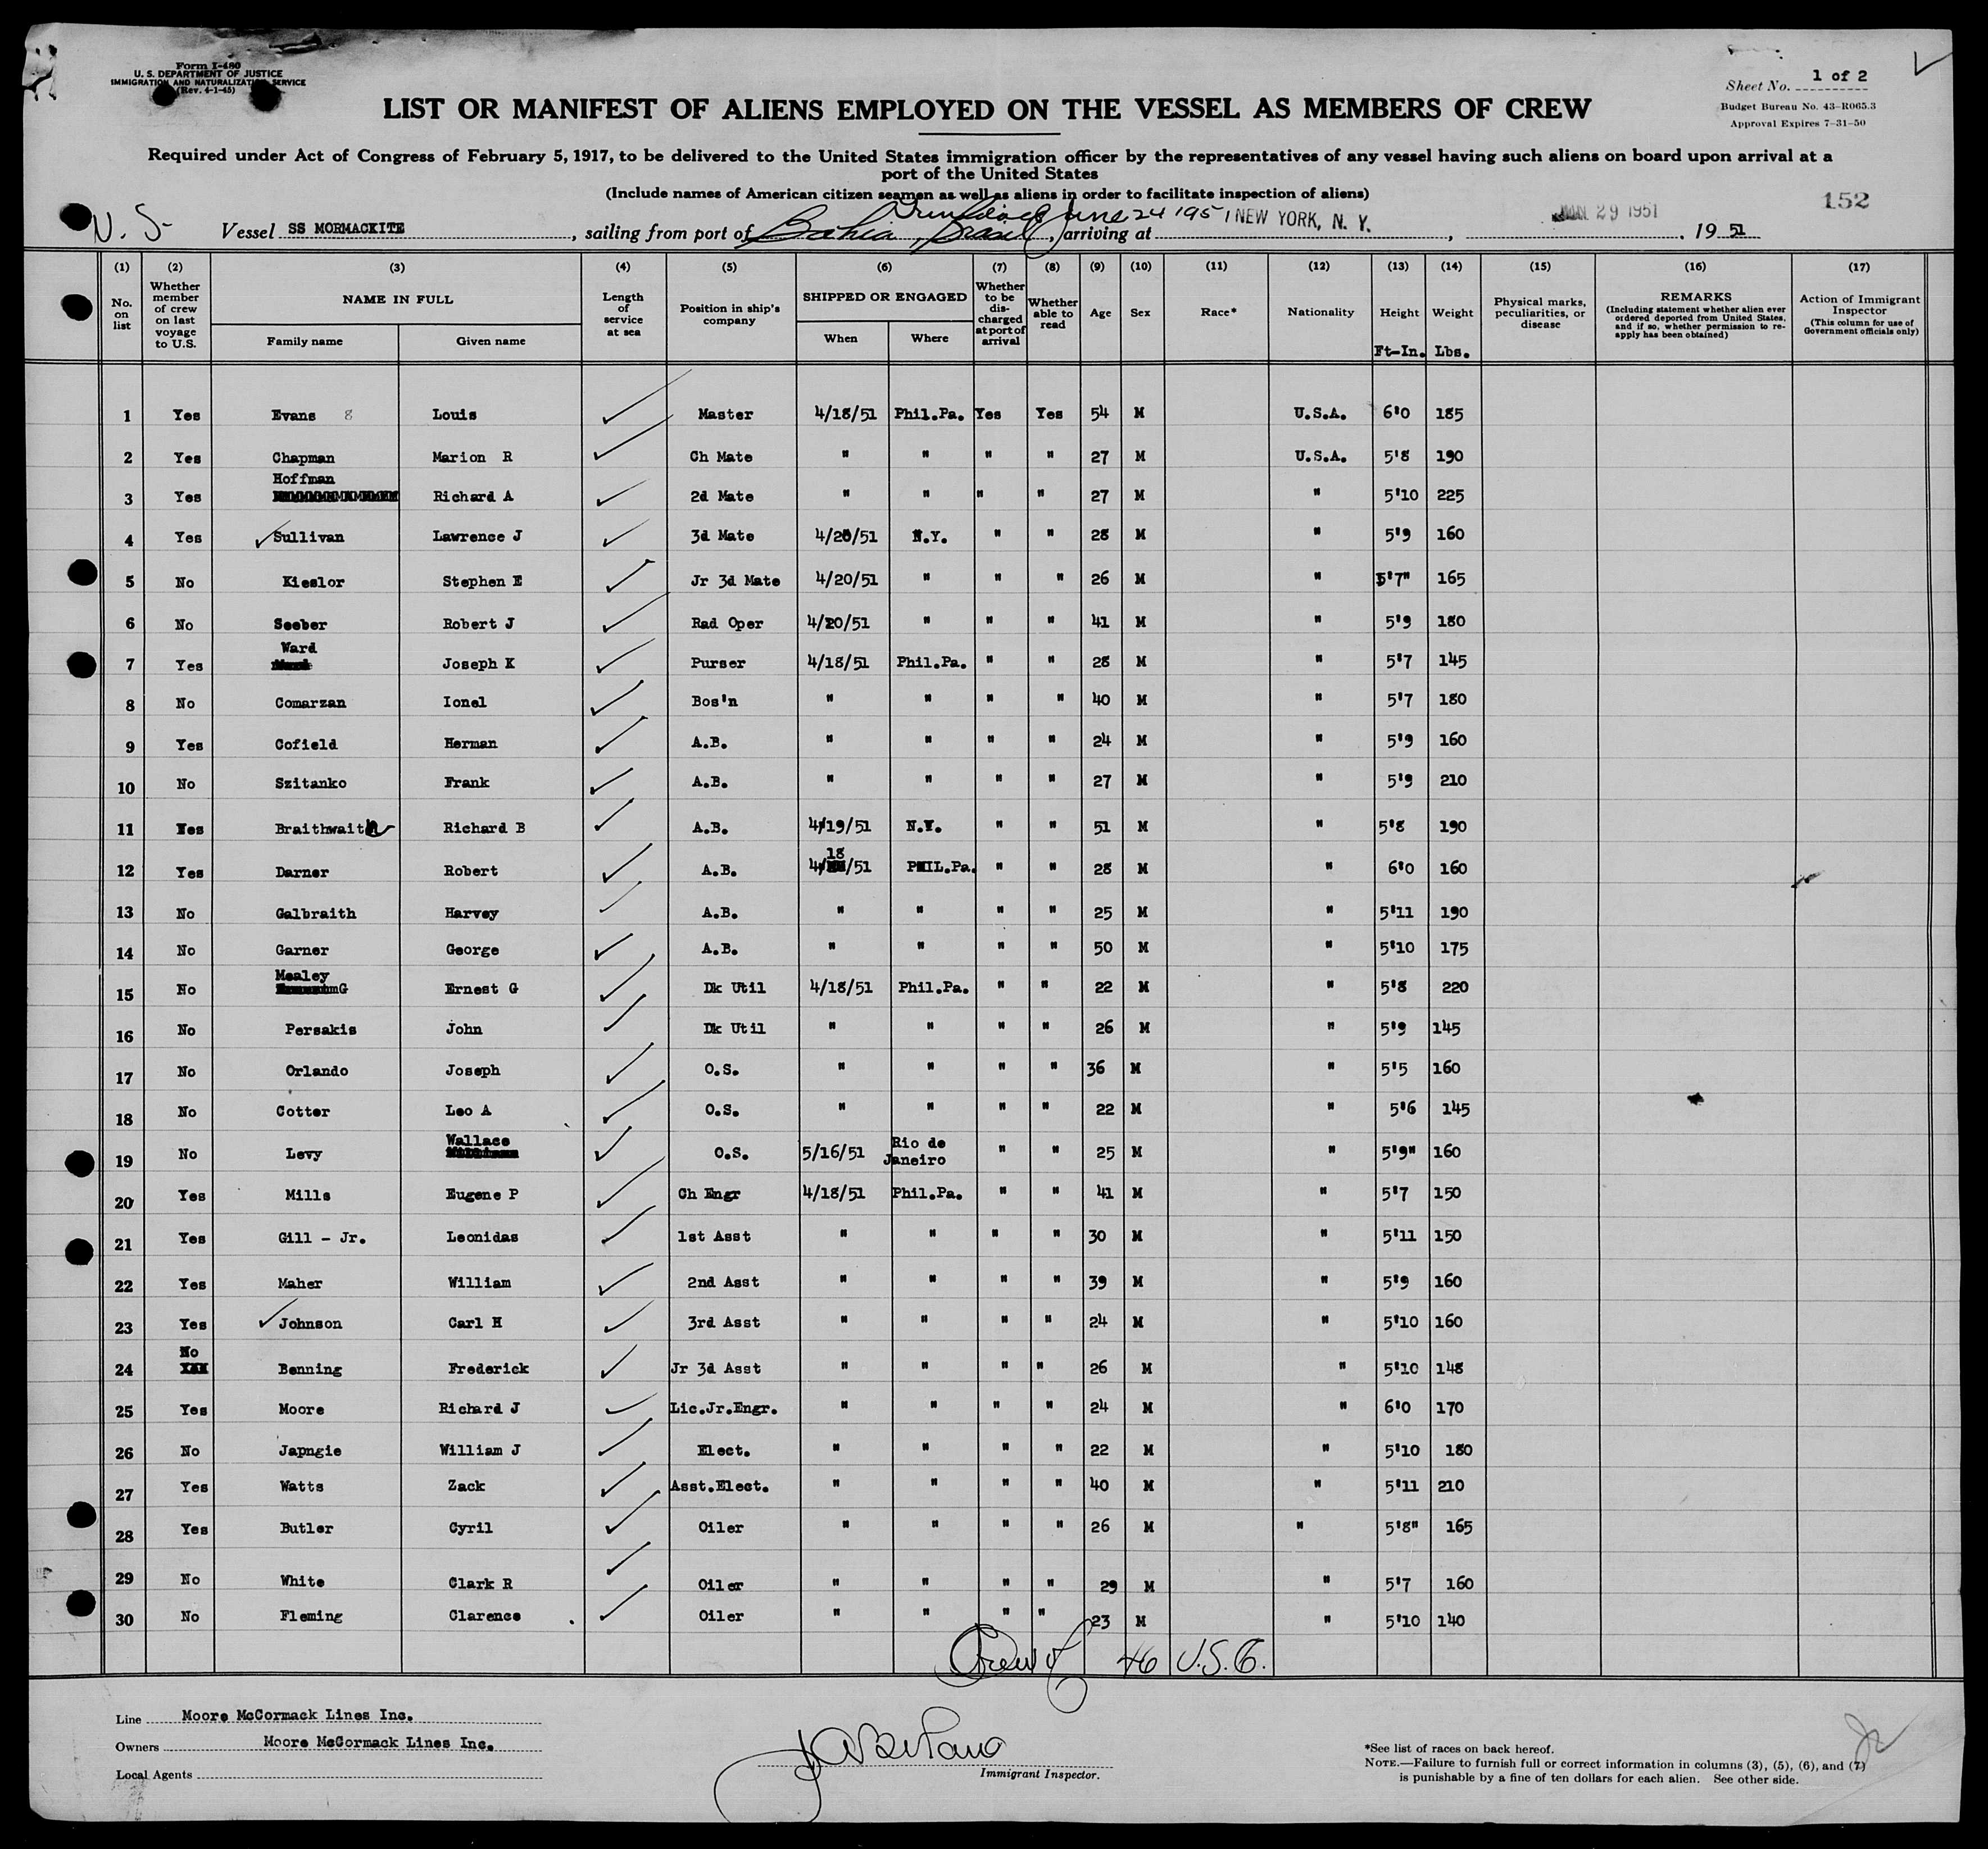 Form I-480
U. S. DEPARTMENT OF JUSTICE
IMMIGRATION AND NATURALIZATION SERVICE
(Rev. 4-1-45)
Sheet No. 1 of 2
Budget Bureau No. 43-R065.3
Approval Expires 7-31-50
LIST OR MANIFEST OF ALIENS EMPLOYED ON THE VESSEL AS MEMBERS OF CREW
Required under Act of Congress of February 5, 1917, to be delivered to the United States immigration officer by the representatives of any vessel having such aliens on board upon arrival at a
port of the United States
(Include names of American citizen seamen as well as aliens in order to facilitate inspection of aliens)
152
June 24 1951
Vessel SS MORMACKITE, sailing from port of Bahia, Brasil, arriving at NEW YORK, N. Y., 29 1951, 19 51
(1) (2) (3) (4) (5) (6) (7) (8) (9) (10) (11) (12) (13) (14) (15) (16) (17)
No. on list
Whether member of crew on last voyage to U.S.
NAME IN FULL
Family name
Given name
Length of service at sea
Position in ship's company
SHIPPED OR ENGAGED
When
Where
Whether to be discharged at port of arrival
Whether able to read
Age
Sex
Race*
Nationality
Height
Ft-In.
Weight
Lbs.
Physical marks, peculiarities, or disease
REMARKS
(Including statement whether alien ever ordered deported from United States, and if so, whether permission to reapply has been obtained)
Action of Immigrant Inspector
(This column for use of Government officials only)
1 Yes Evans 8 Louis Master 4/18/51 Phil.Pa. Yes Yes 54 M U.S.A. 6'0 185
2 Yes Chapman Marion R Ch Mate " " " " 27 M U.S.A. 5'8 190
3 Yes Hoffman Richard A 2d Mate " " " " 27 M " 5'10 225
4 Yes Sullivan Lawrence J 3d Mate 4/20/51 N.Y. " " 28 M " 5'9 160
5 No Kieslor Stephen E Jr 3d Mate 4/20/51 " " " 26 M " 5'7" 165
6 No Seeber Robert J Rad Oper 4/20/51 " " " 41 M " 5'9 180
7 Yes Ward Joseph K Purser 4/18/51 Phil.Pa. " " 28 M " 5'7 145
8 No Comarzan Ionel Bos'n " " " " 40 M " 5'7 180
9 Yes Cofield Herman A.B. " " " " 24 M " 5'9 160
10 No Szitanko Frank A.B. " " " " 27 M " 5'9 210
11 Yes Braithwaite Richard B A.B. 4/19/51 N.Y. " " 51 M " 5'8 190
12 Yes Darner Robert A.B. 4/18/51 PHIL.Pa. " " 28 M " 6'0 160
13 No Galbraith Harvey A.B. " " " " 25 M " 5'11 190
14 No Garner George A.B. " " " " 50 M " 5'10 175
15 No Mealey Ernest G Dk Util 4/18/51 Phil.Pa. " " 22 M " 5'8 220
16 No Persakis John Dk Util " " " " 26 M " 5'9 145
17 No Orlando Joseph O.S. " " " " 36 M " 5'5 160
18 No Cotter Leo A O.S. " " " " 22 M " 5'6 145
19 No Levy Wallace O.S. 5/16/51 Rio de Janeiro " " 25 M " 5'9" 160
20 Yes Mills Eugene P Ch Engr 4/18/51 Phil.Pa. " " 41 M " 5'7 150
21 Yes Gill - Jr. Leonidas 1st Asst " " " " 30 M " 5'11 150
22 Yes Maher William 2nd Asst " " " " 39 M " 5'9 160
23 Yes Johnson Carl H 3rd Asst " " " " 24 M " 5'10 160
24 No Benning Frederick Jr 3d Asst " " " " 26 M " 5'10 148
25 Yes Moore Richard J Lic.Jr.Engr. " " " " 24 M " 6'0 170
26 No Japngie William J Elect. " " " " 22 M " 5'10 180
27 Yes Watts Zack Asst.Elect. " " " " 40 M " 5'11 210
28 Yes Butler Cyril Oiler " " " " 26 M " 5'8" 165
29 No White Clark R Oiler " " " " 29 M " 5'7 160
30 No Fleming Clarence Oiler " " " " 23 M " 5'10 140
Crew of 46 U.S.C.
Line Moore McCormack Lines Inc.
Owners Moore McCormack Lines Inc.
Local Agents
Immigrant Inspector.
*See list of races on back hereof.
NOTE.—Failure to furnish full or correct information in columns (3), (5), (6), and (7)
is punishable by a fine of ten dollars for each alien. See other side.